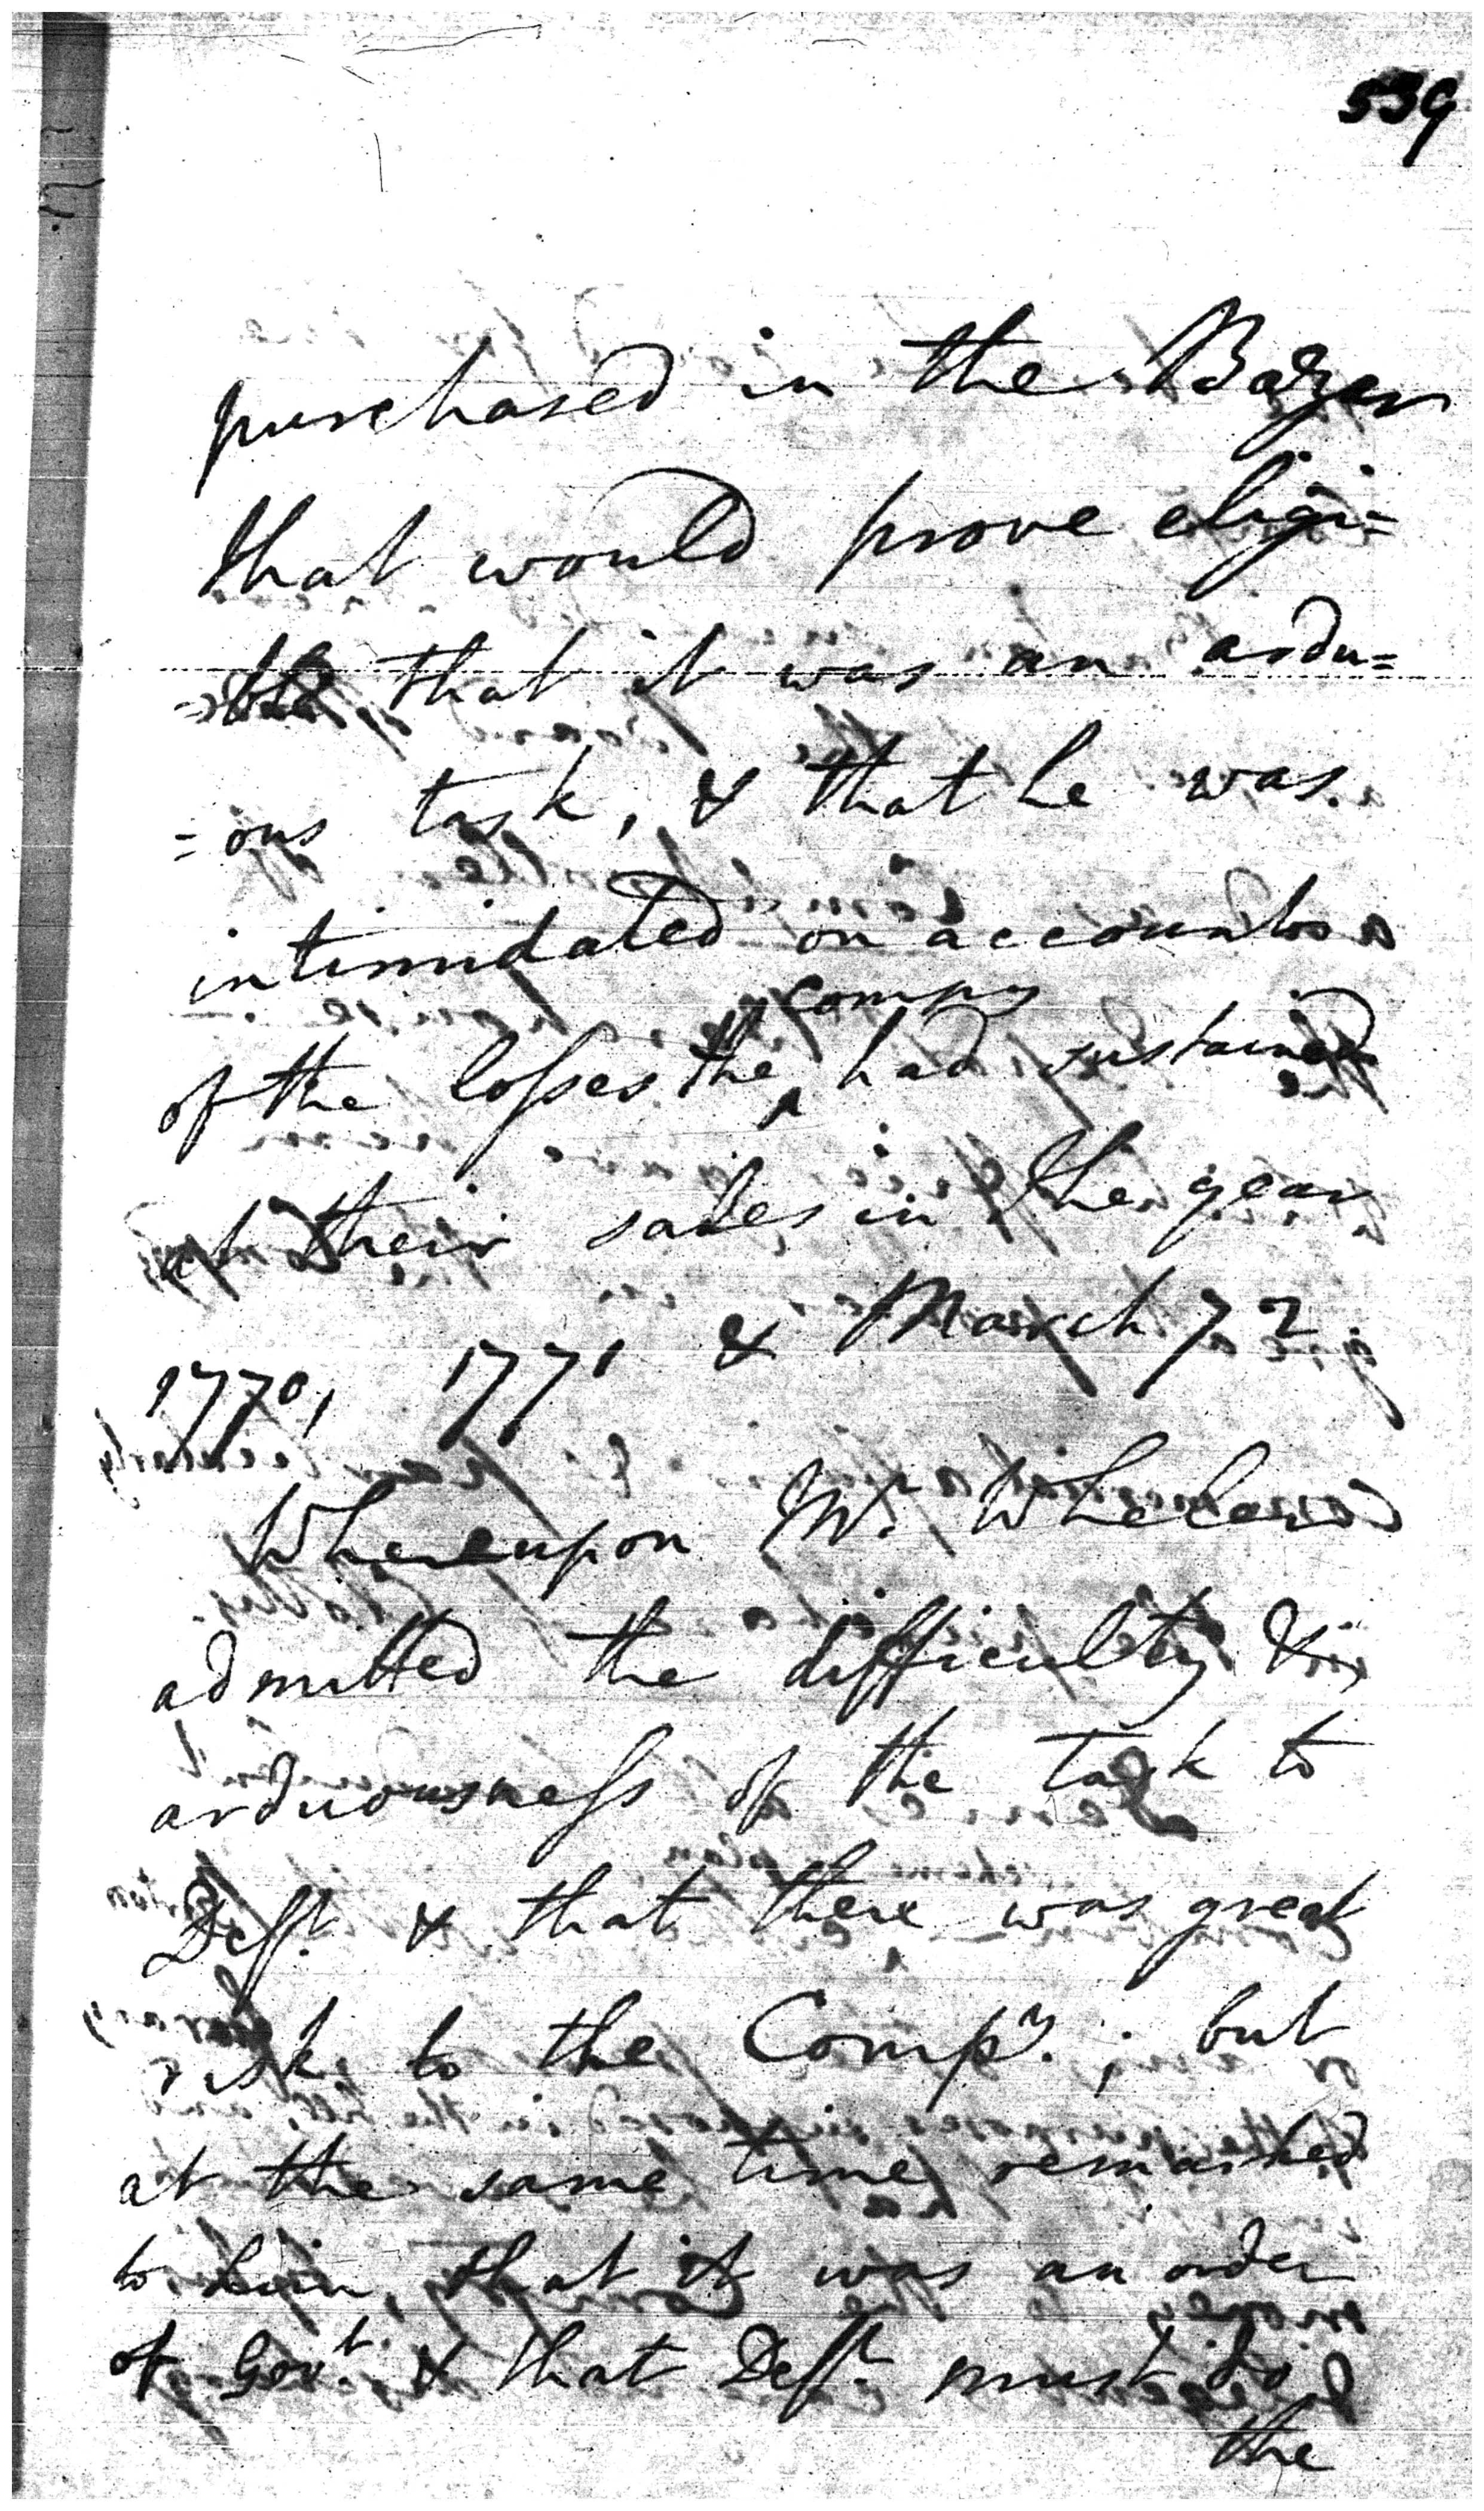 539
purchased in the Bazar
that would prove eligi=
=ble that it was an ardu=
=ous task, & that he was
intimidated on account
of the losses the Compys had sustained
at their sales in the year
1770, 1771 & March 72
Whereupon Mr. Wheler
admitted the difficulty &
arduousness of the task to
Deft. & that there was great
risk to the Compy. ; but
at the same time remarked
to him, that it was an order
of Govt. & that Deft. must do
the